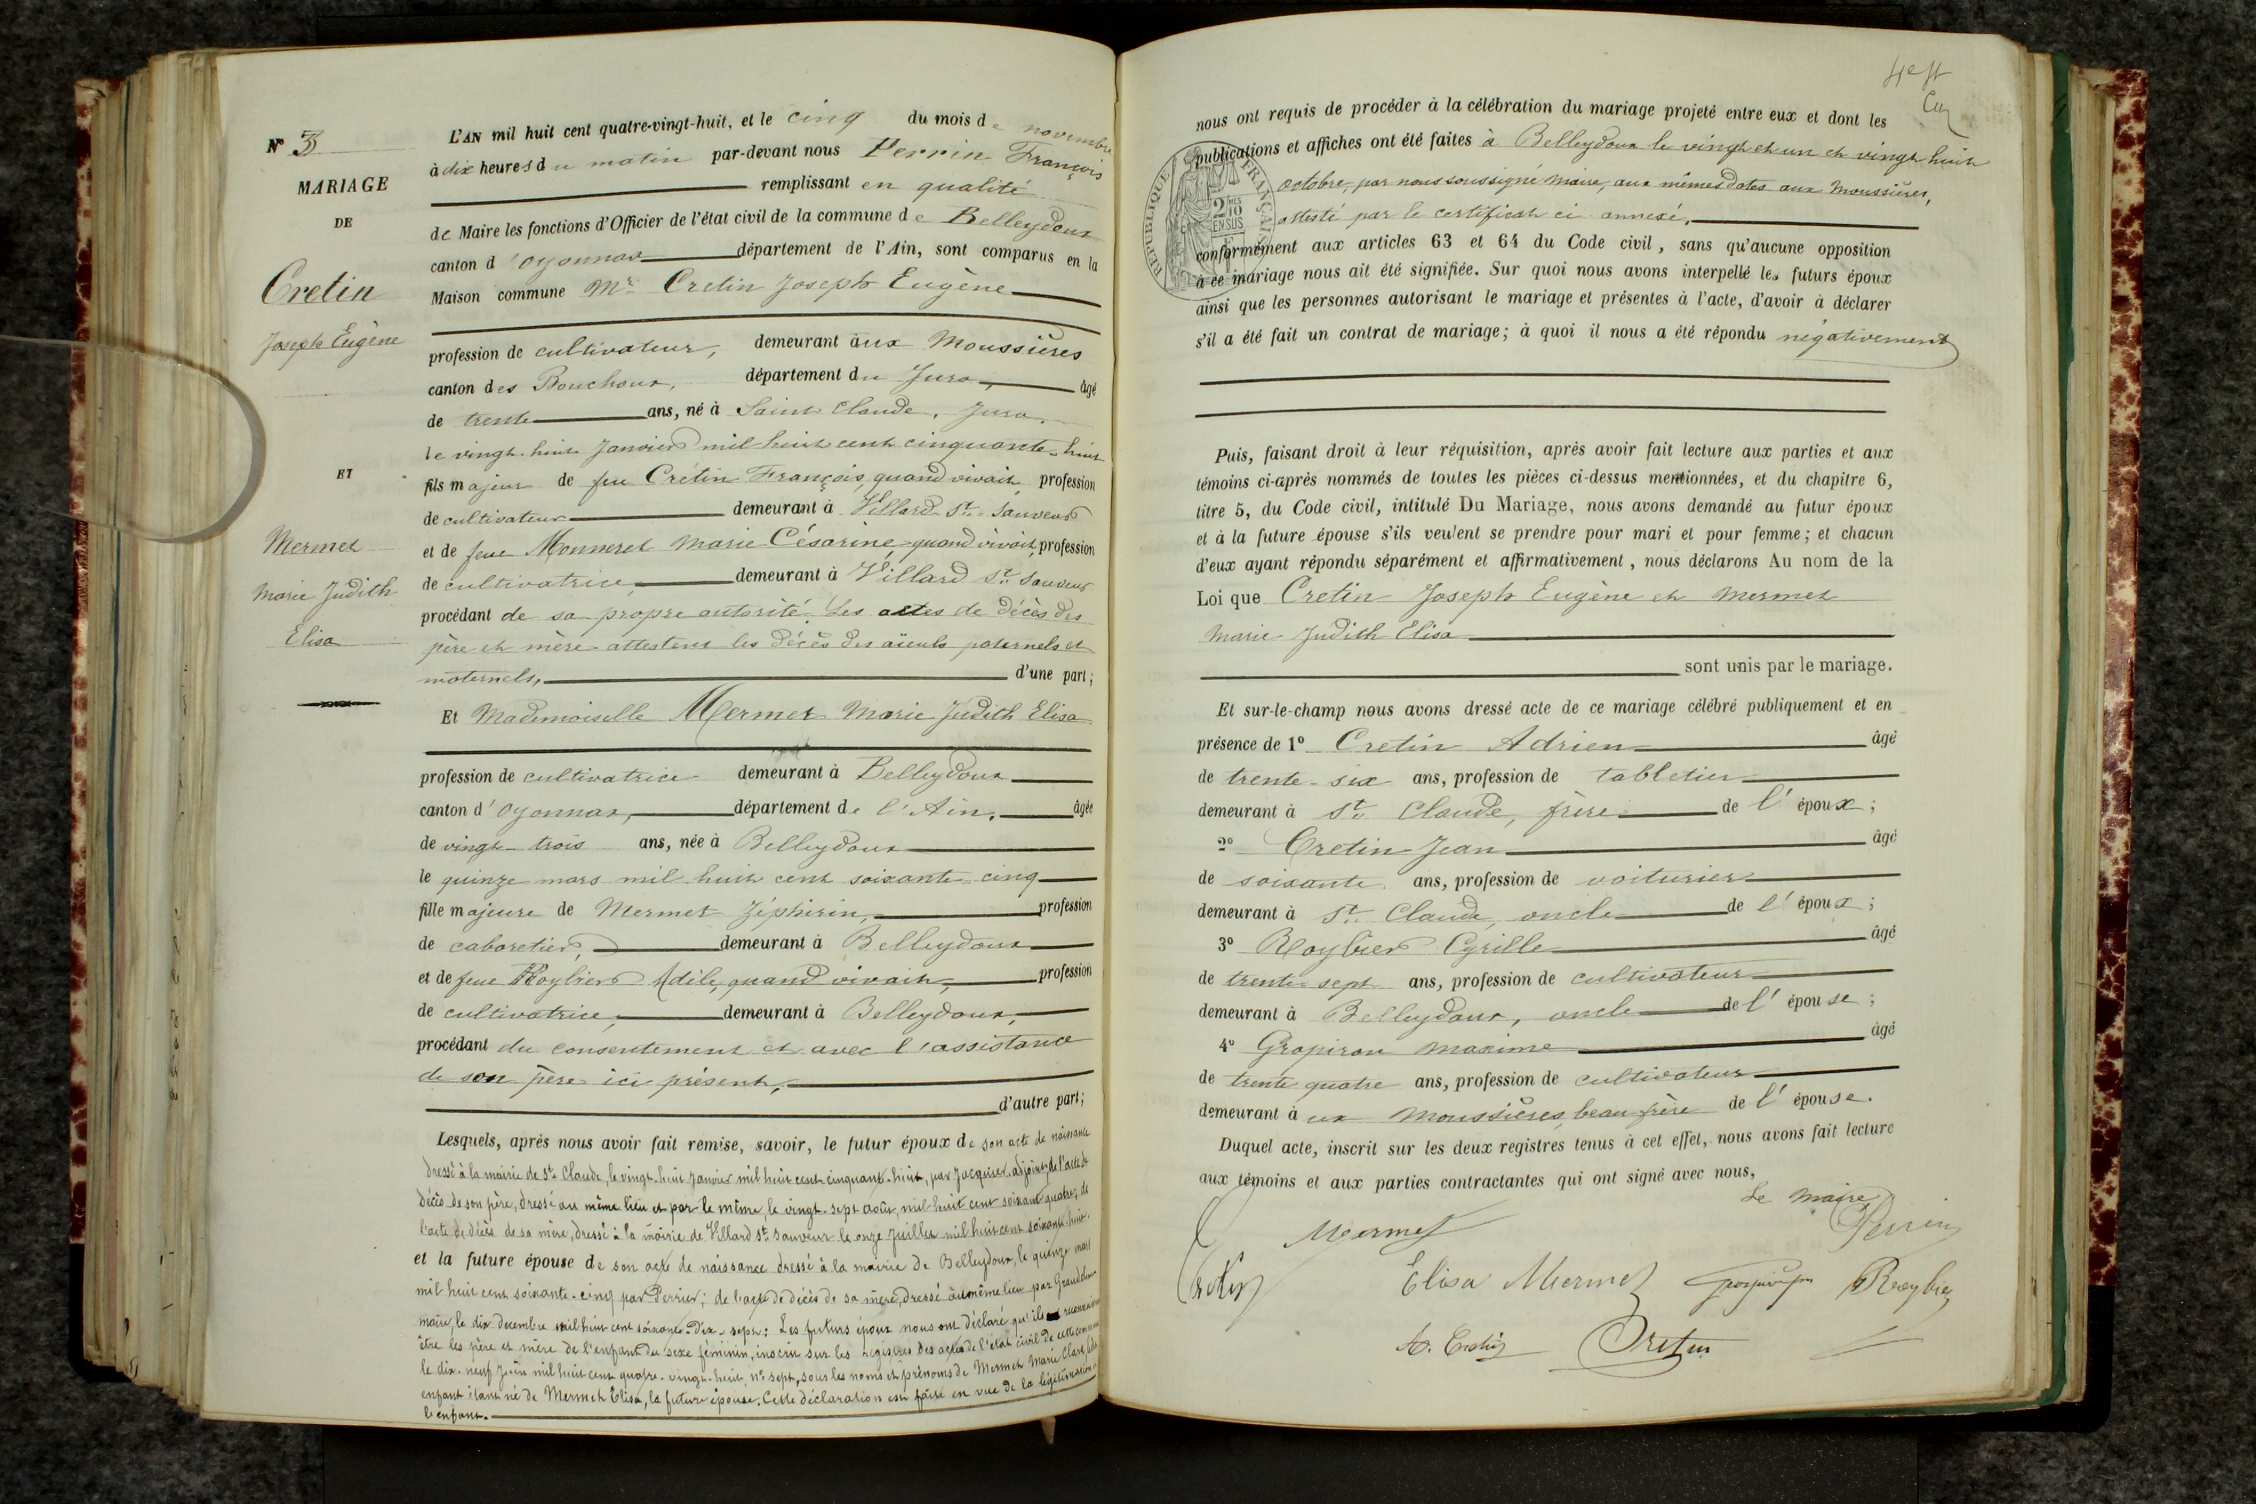 N° 3
MARIAGE
DE
Cretin
Joseph Eugène
ET
Mermet
Marie Judith
Elisa
L'AN mil huit cent quatre-vingt-huit, et le cinq du mois de novembre
à dix heures du matin par-devant nous Perrin François
remplissant en qualité
de Maire les fonctions d'Officier de l'état civil de la commune de Belleydoux
canton d'Oyonnax département de l'Ain, sont comparus en la
Maison commune Mr Cretin Joseph Eugène
profession de cultivateur, demeurant aux Moussières
canton des Bouchoux, département du Jura, âgé
de trente ans, né à Saint Claude, Jura,
le vingt-huit Janvier mil huit cent cinquante-huit
fils majeur de feu Crétin François, quand vivait, profession
de cultivateur demeurant à Villard St Sauveur
et de feue Monneret Marie Césarine quand vivait, profession
de cultivatrice, demeurant à Villard St Sauveur
procédant de sa propre autorité. Les actes de décès des
père et mère attestent les décès des aïeuls paternels et
maternels, d'une part;
Et Mademoiselle Mermet Marie Judith Elisa
profession de cultivatrice demeurant à Belleydoux
canton d'Oyonnax, département de l'Ain, âgée
de vingt-trois ans, née à Belleydoux
le quinze mars mil huit cent soixante-cinq
fille majeure de Mermet Zéphirin, profession
de cabaretier, demeurant à Belleydoux
et de feue Roybier Adèle, quand vivait, profession
de cultivatrice, demeurant à Belleydoux,
procédant du consentement et avec l'assistance
de son père ici présent,
d'autre part;
Lesquels, après nous avoir fait remise, savoir, le futur époux de son acte de naissance
dressé à la mairie de St Claude, le vingt-huit Janvier mil huit cent cinquante-huit, par Jacquier, adjoint; de l'acte de
décès de son père, dressé au même lieu et par le même, le vingt-sept août, mil huit cent soixante quatre; de
l'acte de décès de sa mère, dressé à la mairie de Villard St Sauveur le onze Juillet mil huit cent soixante-huit.
et la future épouse de son acte de naissance dressé à la mairie de Belleydoux, le quinze mars
mil huit cent soixante-cinq par Perrier; de l'acte de décès de sa mère, dressé au même lieu par
maire, le dix decembre mil huit cent soixante-dix-sept: Les futurs époux nous ont déclaré qu'ils
être les père et mère de l'enfant du sexe féminin, inscrit sur les registres des actes de l'état civil de cette commune
le dix-neuf Juin mil huit cent quatre-vingt-huit, n° sept, sous les noms et prénoms de Mermet Marie Clara
enfant étant né de Mermet Elisa, la future épouse. Cette déclaration est faite en vue de la légitimation de
l'enfant.
nous ont requis de procéder à la célébration du mariage projeté entre eux et dont les
publications et affiches ont été faites à Belleydoux le vingt et un et vingt huit
octobre, par nous soussigné Maire, aux mêmes dates aux Moussières,
attesté par le certificat ci annexé,
REPUBLIQUE FRANÇAISE
conformément aux articles 63 et 64 du Code civil, sans qu'aucune opposition
à ce mariage nous ait été signifiée. Sur quoi nous avons interpellé les futurs époux
ainsi que les personnes autorisant le mariage et présentes à l'acte, d'avoir à déclarer
s'il a été fait un contrat de mariage; à quoi il nous a été répondu négativement
Puis, faisant droit à leur réquisition, après avoir fait lecture aux parties et aux
témoins ci-après nommés de toutes les pièces ci-dessus mentionnées, et du chapitre 6,
titre 5, du Code civil, intitulé Du Mariage, nous avons demandé au futur époux
et à la future épouse s'ils veulent se prendre pour mari et pour femme; et chacun
d'eux ayant répondu séparément et affirmativement, nous déclarons Au nom de la
Loi que Cretin Joseph Eugène et Mermet
Marie Judith Elisa
sont unis par le mariage.
Et sur-le-champ nous avons dressé acte de ce mariage célébré publiquement et en
présence de 1° Cretin Adrien âgé
de trente-six ans, profession de tabletier
demeurant à St Claude, frère de l'époux;
2° Cretin Jean âgé
de soixante ans, profession de voiturier
demeurant à St Claude, oncle de l'époux;
3° Roybier Cyrille âgé
de trente-sept ans, profession de cultivateur
demeurant à Belleydoux, oncle de l'épouse;
4° Grospiron Maxime âgé
de trente quatre ans, profession de cultivateur
demeurant aux Moussières, beau frère de l'épouse.
Duquel acte, inscrit sur les deux registres tenus à cet effet, nous avons fait lecture
aux témoins et aux parties contractantes qui ont signé avec nous,
Le Maire
Perrin
Mermet
Cretin
Elisa Mermet
Roybier
A. Cretin
Cretin